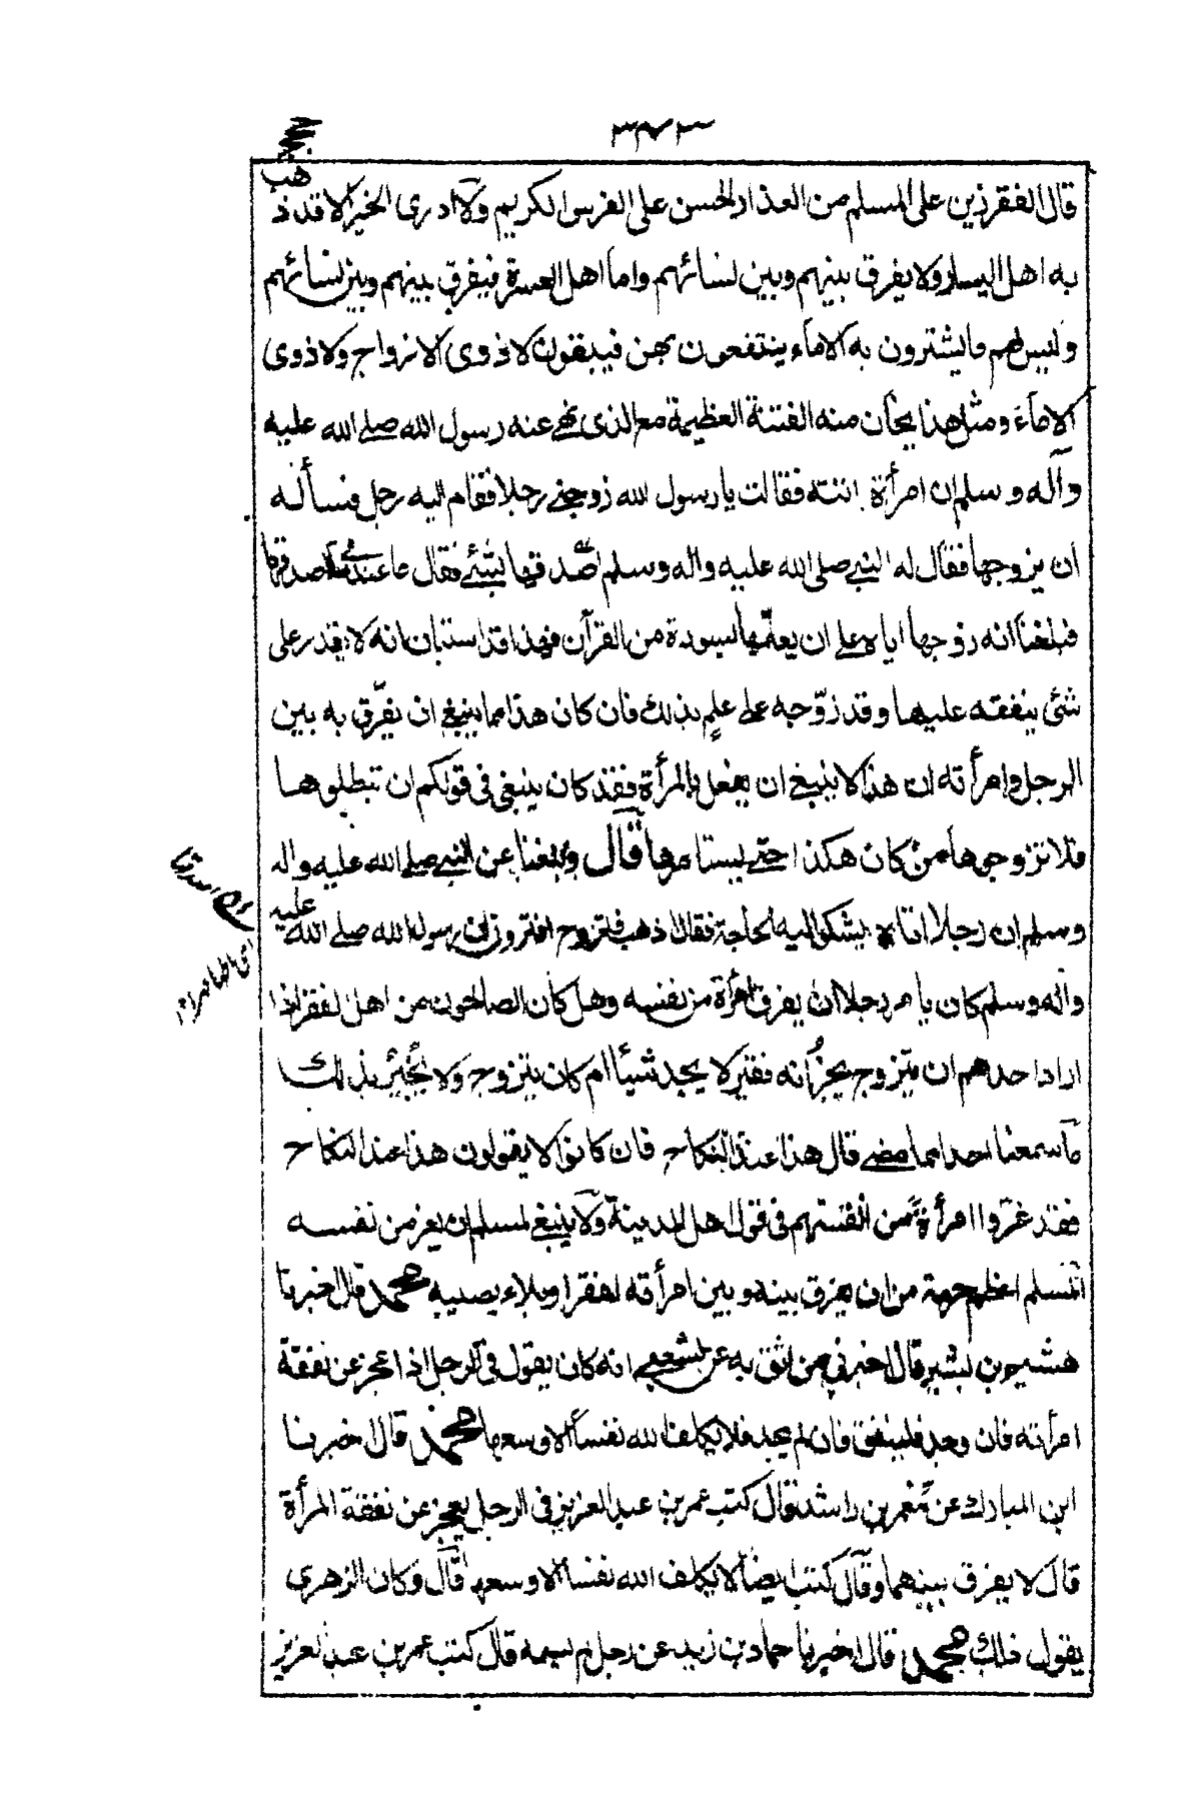 ٣٤٣
قال الفقر ازين على المسلم من العذار الحسن على الفرس الكريم ولا ادرى الخبر الا قد ذهب
به اهل اليسار ولا يفرق بينهم وبين نسائهم واما اهل العسرة فيفرق بينهم وبين نسائهم
وليس لهم ما يشترون به الاماء ينتفعون بهن فيبقون لا ذوى الازواج ولا ذوى
الاماء ومثل هذا يخاف منه الفتنة العظيمة مع الذى نهى عنه رسول الله صلى الله عليه
وآله وسلم ان امرأة اتته فقالت يا رسول الله زوجنى رجلا فقام اليه رجل فسأله
ان يزوجها فقال له النبى صلى الله عليه واله وسلم اصدقها بشئ فقال ما عندى شئ اصدقها
فبلغنا انه زوجها اياه على ان يعلّمها سورة من القرآن فهذا قد استبان انه لا يقدر على
شئ ينفقه عليها وقد زوّجه على علم بذلك فان كان هذا مما ينبغى ان يفرّق به بين
الرجل وامرأته ان هذا لا ينبغى ان يفعل بالمرأة فقد كان ينبغى فى قولكم ان تبطلوها
فلا تزوجوها من كان هكذا حتى يستامرها قال وبلغنا عن النبى صلى الله عليه واله
وسلم ان رجلا اتاه يشكو اليه الحاجة فقال اذهب فتزوج افترون ان رسول الله صلى الله عليه
وآله وسلم كان يامر رجلا ان يفرق امرأة من نفسه وهل كان الصالحون من اهل الفقر اذا
اراد احدهم ان يتزوج يخبر انه فقير لا يجد شيئا ام كان يتزوج ولا يخبر بذلك
ما سمعنا احدا مما مضى قال هذا عند النكاح فان كانوا لا يقولون هذا عند النكاح
فقد غرّوا امرأة من انفسهم فى قول اهل المدينة ولا ينبغى لمسلم ان يغر من نفسه
المسلم اعظم حرمة من ان يفرق بينه وبين امرأته لفقر او بلاء يصيبه محمد قال اخبرنا
هشيم بن بشير قال اخبرنى من اثق به عن الشعبى انه كان يقول فى الرجل اذا عجز عن نفقة
امرأته فان وجد فلينفق فان لم يجد فلا يكلف الله نفسا الا وسعها محمد قال اخبرنا
ابن المبارك عن معمر بن راشد قال كتب عمر بن عبد العزيز فى الرجل يعجز عن نفقة المرأة
قال لا يفرق بينهما وقال كتب ايضا لا يكلف الله نفسا الا وسعها قال وكان الزهرى
يقول ذلك محمد قال اخبرنا حماد بن زيد عن رجل لم يسمه قال كتب عمر بن عبد العزيز